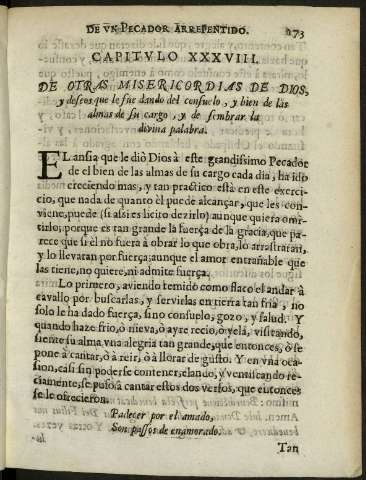 DE VN PECADOR ARREPENTIDO. 273
CAPITVLO XXXVIII.
DE OTRAS MISERICORDIAS DE DIOS,
y deseos que le fue dando del consuelo, y bien de las
almas de su cargo, y de sembrar la
divina palabra.
EL ansia que le diò Dios à este grandissimo Pecador
de el bien de las almas de su cargo cada dia, ha ido
creciendo mas, y tan practico està en este exerci-
cio, que nada de quanto èl puede alcançar, que les con-
viene, puede (si assi es licito dezirlo) aunque quiera omi-
tirlo; porque es tan grande la fuerça de la gracia, que pa-
rece que si èl no fuera à obrar lo que obra, lo arrastraràn,
y lo llevaràn por fuerça; aunque el amor entrañable que
las tiene, no quiere, ni admite fuerça.
Lo primero, aviendo temido como flaco el andar à
cavallo por buscarlas, y servirlas en tierra tan fria, no
solo le ha dado fuerça, sino consuelo, gozo, y salud. Y
quando haze frio, ò nieva, ò ayre recio, ò yela, visitando,
siente su alma vna alegria tan grande, que entonces, ò se
pone à cantar, ò à reir, ò à llorar de gusto. Y en vna oca-
sion, casi sin poderse contener, elando, y ventiscando re-
ciamente, se puso à cantar estos dos versos, que entonces
se le ofrecieron.
Padecer por el amado,
Son passos de enamorado.
Tan